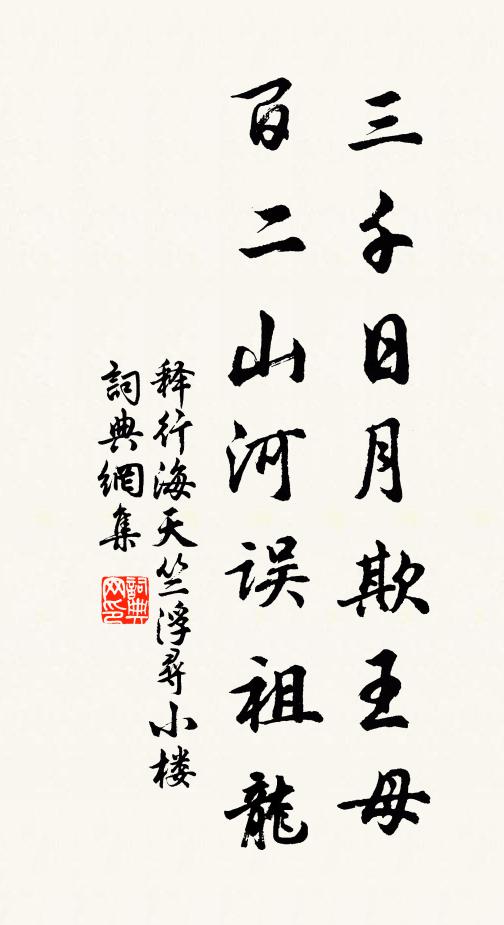 三千日月欺王母
百二山河误祖龍
释行海天竺浮尋小楼
詞典網集
詞典
网印